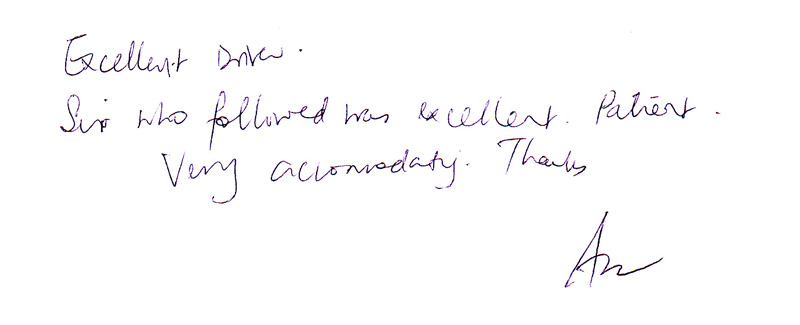 Excellent Driver.
Sir who followed was excellent. Patient.
Very accomodatig. Thanks